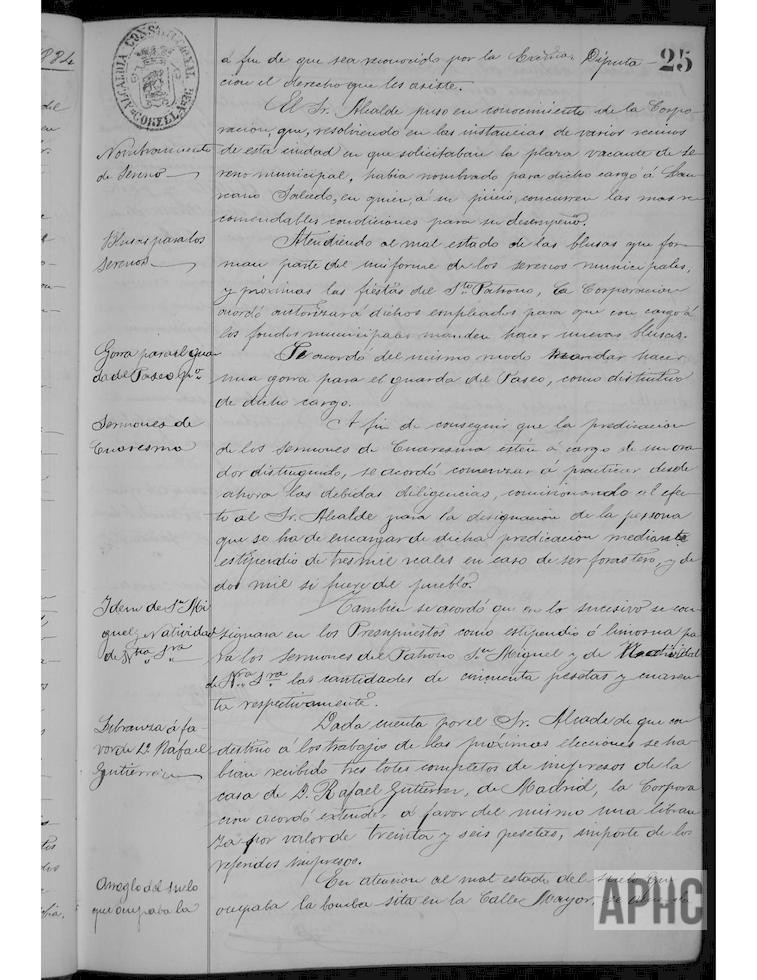 1884
25
ALCALDIA CONSTITUCIONAL DE CORELLA
á fin de que sea reconocido por la Excma. Diputa-
cion el derecho que les asiste.
El Sr. Alcalde puso en conocimiento de la Corpo-
racion, que, resolviendo en las instancias de varios vecinos
Nombramiento
de esta ciudad en que solicitaban la plaza vacante de se-
de Sereno
reno municipal, habia nombrado para dicho cargo á
Salcedo, en quien, á su juicio, concurren las mas re-
comendables condiciones para su desempeño.
Blusas para los
Atendiendo al mal estado de las blusas que for-
Serenos
man parte del uniforme de los serenos municipales,
y próximas las fiestas del Sto. Patrono, la Corporacion
acordó autorizar á dichos empleados para que con cargo á
los fondos municipales manden hacer nuevas blusas.
Gorra para el guar
Se acordó del mismo modo mandar hacer
da del Paseo
una gorra para el guarda del Paseo, como distintivo
de dicho cargo.
Sermones de
A fin de conseguir que la predicacion
Cuaresma
de los sermones de Cuaresma estén á cargo de un ora-
dor distinguido, se acordó comenzar á practicar desde
ahora las debidas diligencias, comisionando al efec-
to al Sr. Alcalde para la designacion de la persona
que se ha de encargar de dicha predicacion mediante
estipendio de tres mil reales en caso de ser forastero, y de
dos mil si fuere del pueblo.
Idem de Sn. Mi
Tambien se acordó que en lo sucesivo se con-
guel y Natividad
signara en los Presupuestos como estipendio ó limosna pa-
de Ntra. Sra.
ra los sermones del Patrono Sn. Miguel y de Natividad
de Ntra. Sra. las cantidades de cincuenta pesetas y cuaren-
ta respectivamente.
Libranza á fa-
Dada cuenta por el Sr. Alcalde de que con
vor de D. Rafael
destino á los trabajos de las próximas elecciones se ha-
Gutierrez
bian recibido tres lotes completos de impresos de la
casa de D. Rafael Gutierrez, de Madrid, la Corpora
cion acordó extender á favor del mismo una libran
za por valor de treinta y seis pesetas, importe de los
referidos impresos.
Arreglo del suelo
En atencion al mal estado del suelo que
que ocupaba la
ocupaba la bomba sita en la Calle Mayor,
APHC